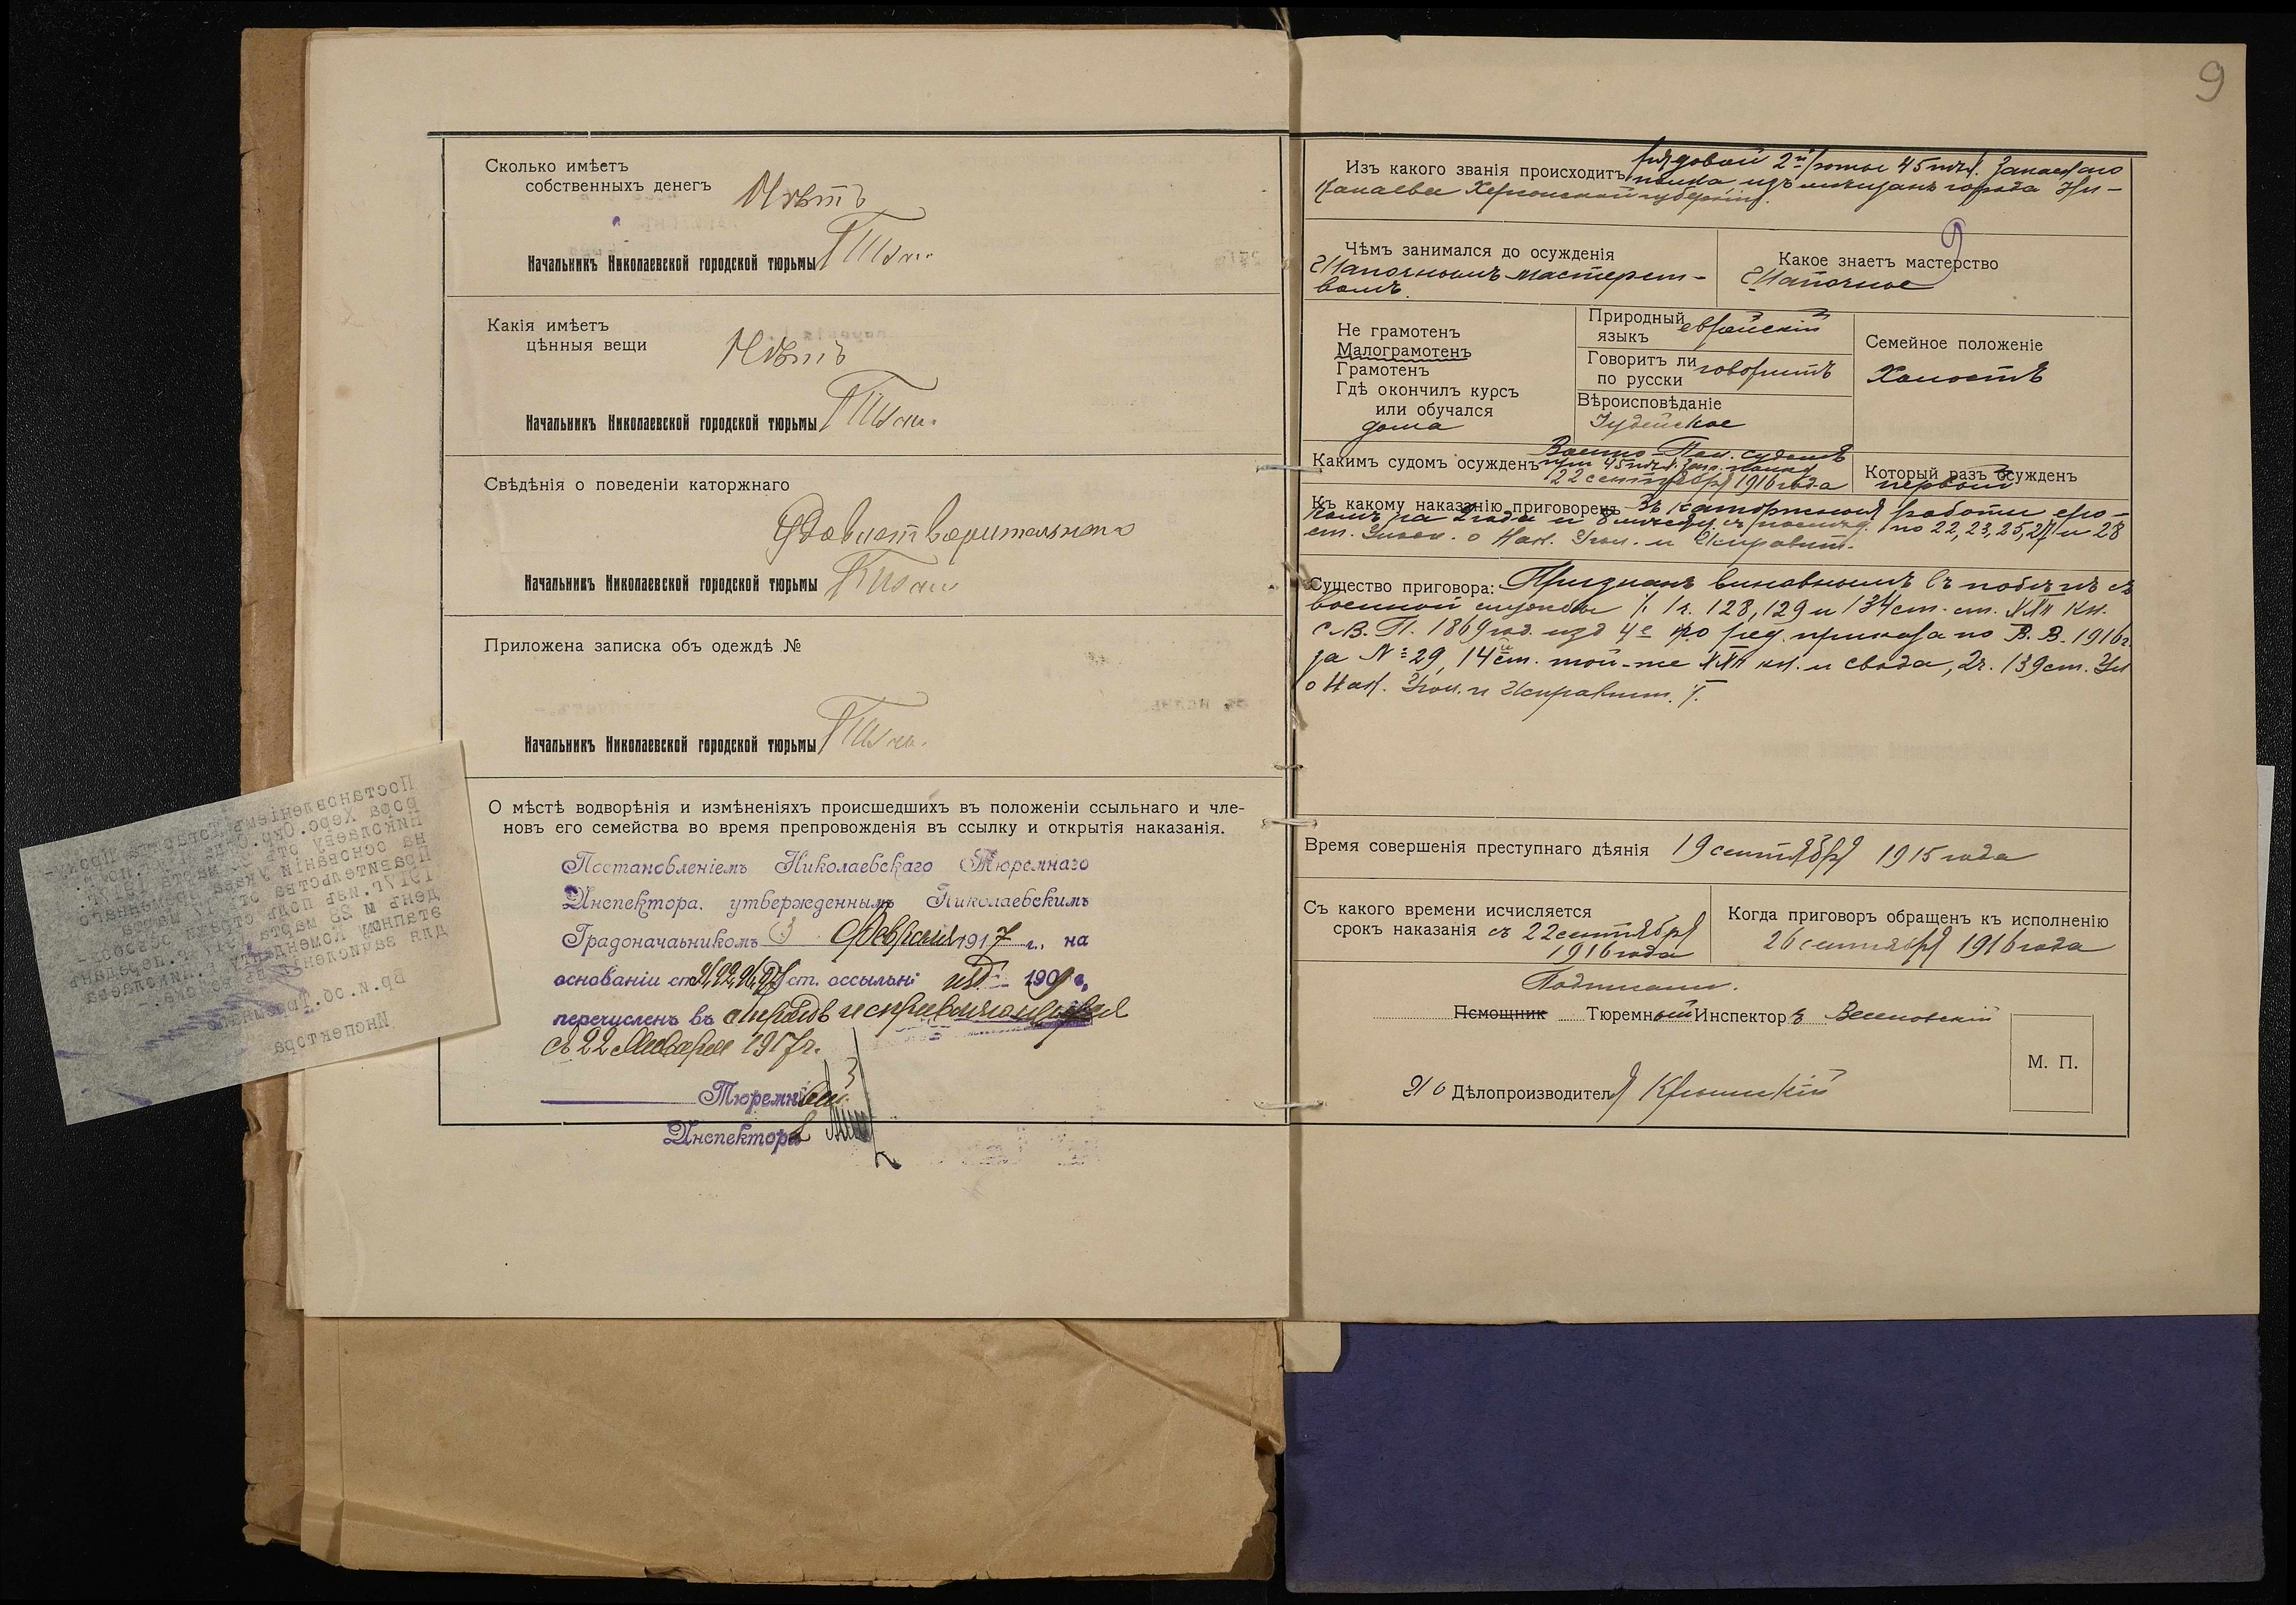 Сколько имѣетъ
собственныхъ денегъ
Нѣтъ
Начальникъ Николаевской городской тюрьмы
Какія имѣетъ
цѣнныя вещи
Нѣтъ
Начальникъ Николаевской городской тюрьмы
Свѣдѣнія о поведеніи каторжнаго
Удовлетворительнаго
Начальникъ Николаевской городской тюрьмы
Приложена записка объ одеждѣ №
Начальникъ Николаевской городской тюрьмы
О мѣстѣ водворѣнія и измѣненіяхъ происшедшихъ въ положеніи ссыльнаго и чле-
новъ его семейства во время препровожденія въ ссылку и открытія наказанія.
Постановленіемъ Николаевскаго Тюремнаго
Инспектора, утвержденнымъ Николаевскимъ
Градоначаьникомъ 3 Февраля 1917 г., на
основаніи ст. ст. оссыльн: изд. 1909 г.
перечисленъ въ отрядъ исправляющихся
съ 22 Января 1917 г.
Тюремный
Инспекторъ
Постановленіемъ Товарища Проку-
рора Херс.Окр.Суда по гор.
Николаеву отъ марта 1917г.
на основаніи Указа Временнаго
Правительства отъ 17 марта
1917г. изъ подъ стражи освобож-
денъ и 23 марта 1917г. переданъ
этапному Коменданту г.Николаева
для зачисленія въ войска.
Вр.и.об.Тюремнаго
Инспектора
9
Изъ какого званія происходитъ рядовой 2й роты 45 пѣх. Запаснаго
полка, изъ мѣщанъ города Ни-
колаева Херсонской губерніи.
9
Чѣмъ занимался до осужденія
Шапочнымъ мастерст-
вомъ.
Какое знаетъ мастерство
Шапочное
Не грамотенъ
Малограмотенъ
Грамотенъ
Гдѣ окончилъ курсъ
или обучался
дома
Природный
языкъ еврейскій
Говоритъ ли
по русски говоритъ
Вѣроисповѣданіе
Іудейское
Семейное положеніе
Холостъ
Какимъ судомъ осужденъ Военно-Пол. судомъ
при 45 пѣх. Зап. полку
22 сентября 1916 года
Который разъ осужденъ
первый
Къ какому наказанію приговоренъ Въ каторжныя работы сро-
комъ на 2 года и 8 мѣсяц. съ послѣд. по 22, 23, 25, 27 и 28
ст. Улож. о Нак. Угол. и Исправит.
Существо приговора: Признанъ виновнымъ въ побѣгѣ съ
военной службы /. 1 ч. 128, 129 и 134 ст. ст. XXII кн.
С.В.П. 1869 год. изд 4е по ред. приказа по В. В. 1916 г.
за № 29, 14 ст. той-же XXII кн. и свода, 2 ч. 139 ст. Ул
о Нак. Угол. и Исправит. /.
Время совершенія преступнаго дѣянія 19 сентября 1915 года
Съ какого времени исчисляется
срокъ наказанія съ 22 сентября
1916 года
Когда приговоръ обращенъ къ исполненію
26 сентября 1916 года
Подписали.
Помощник Тюремный Инспекторъ
И о Дѣлопроизводителя
М. П.